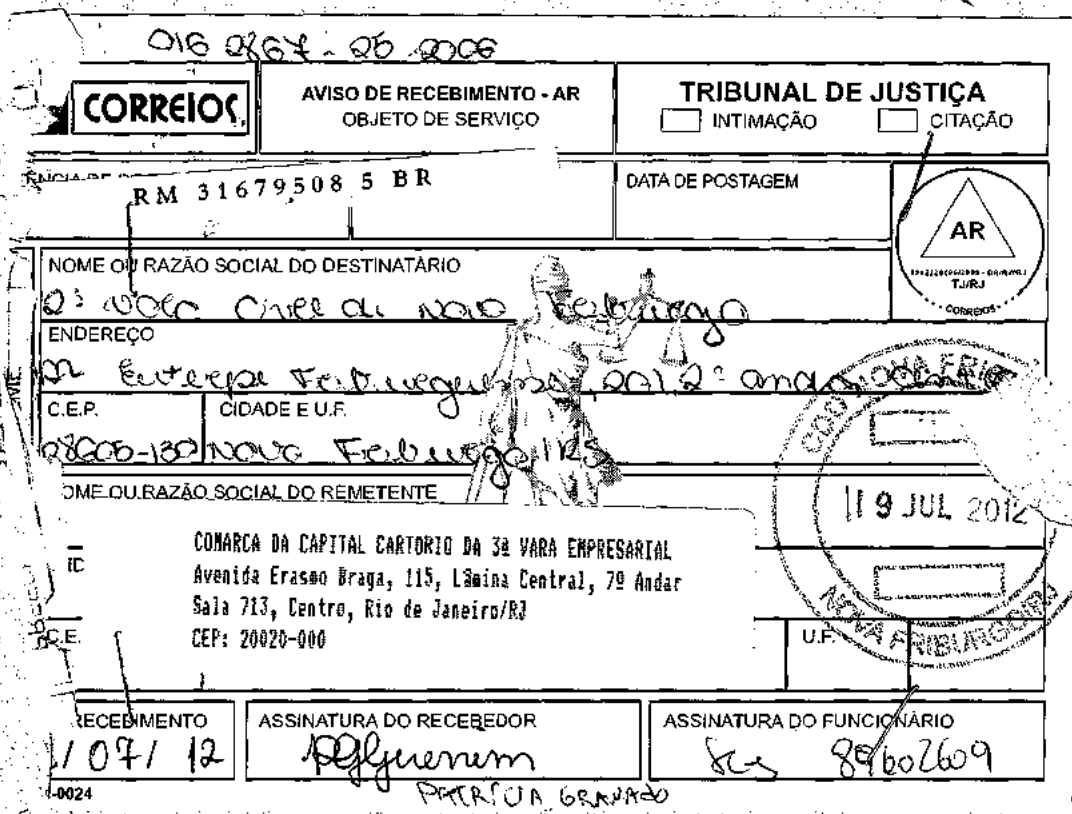 016 2867-25 2006
CORREIOS
AVISO DE RECEBIMENTO - AR
OBJETO DE SERVIÇO
TRIBUNAL DE JUSTIÇA
INTIMAÇÃO
CITAÇÃO
RM 31679508 5 BR
DATA DE POSTAGEM
AR
TJ/RJ
CORREIOS
NOME OU RAZÃO SOCIAL DO DESTINATÁRIO
2ª Vara Civel de Nova Friburgo
ENDEREÇO
Euterpe Friburguense, 201 2º andar
C.E.P.
CIDADE E U.F.
28605-130 Nova Friburgo/RJ
OME OU RAZÃO SOCIAL DO REMETENTE
19 JUL 2012
NOVA FRIBURGO/RJ
COMARCA DA CAPITAL CARTORIO DA 3ª VARA EMPRESARIAL
Avenida Erasmo Braga, 115, Lâmina Central, 7º Andar
Sala 713, Centro, Rio de Janeiro/RJ
CEP: 20020-000
C.E.
U.F.
RECEBIMENTO
/ 07/ 12
ASSINATURA DO RECEBEDOR
ASSINATURA DO FUNCIONÁRIO
89602609
PATRÍCIA GRANADO
-0024